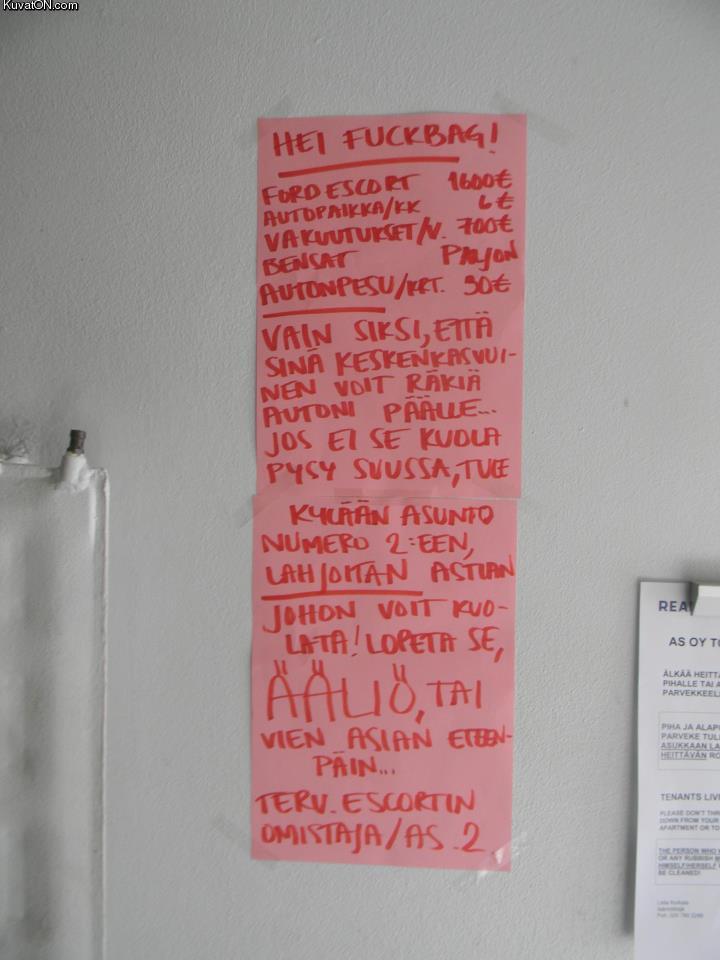 KuvatON.com
HEI FUCKBAG!
FORD ESCORT 1600€
AUTOPAIKKA/KK 6€
VAKUUTUKSET/V. 700€
BENSAT PALJON
AUTONPESU/KRT. 30€
VAIN SIKSI, ETTÄ
SINÄ KESKENKASVUI-
NEN VOIT RÄKIÄ
AUTONI PÄÄLLE...
JOS EI SE KUOLA
PYSY SUUSSA, TULE
KYLÄÄN ASUNTO
NUMERO 2:EEN,
LAHJOITAN ASTIAN
JOHON VOIT KUO-
LATA! LOPETA SE,
ÄÄLIÖ, TAI
VIEN ASIAN ETEEN-
PÄIN...
TERV. ESCORTIN
OMISTAJA/AS. 2
REA
AS OY TO
ÄLKÄÄ HEITTÄ
PIHALLE TAI A
PARVEKKEEL
PIHA JA ALAPU
PARVEKE TUL
ASUKKAAN LA
HEITTÄVÄN RO
TENANTS LIVI
PLEASE DON'T THR
DOWN FROM YOUR
APARTMENT OR TO
THE PERSON WHO
OR ANY RUBBISH
HIMSELF/HERSELF
BE CLEANED!